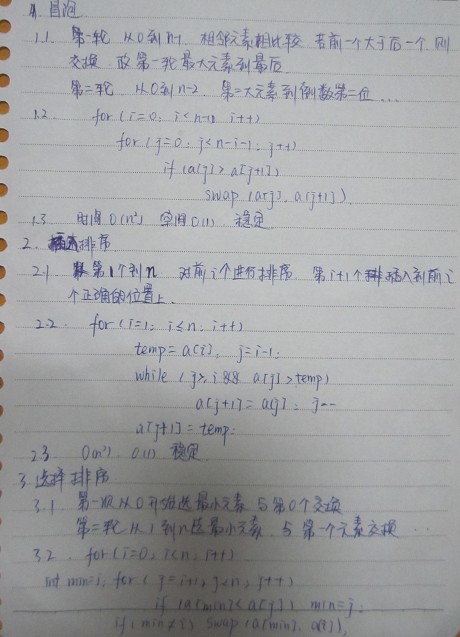 1. 冒泡
1.1. 第一轮 从0到n-1 相邻元素相比较 若前一个大于后一个 则
交换 故第一轮最大元素到最后
第二轮 从0到n-2. 第二大元素到倒数第二位 ...
1.2. for (i=0; i<n-1; i++)
for (j=0; j<n-i-1; j++)
if (a[j]>a[j+1])
swap (a[j], a[j+1]).
1.3. 时间O(n²) 空间O(1) 稳定
2. 插入排序
2.1. 第1个到n 对前i个进行排序. 第i+1个插入到前i
个正确的位置上.
2.2. for (i=1; i≤n; i++)
temp=a[i]; j=i-1;
while (j≥ && a[j]>temp)
a[j+1]=a[j]; j--
a[j+1]=temp.
2.3 O(n²). O(1) 稳定
3. 选择排序
3.1 第一次从0开始选最小元素 与第0个交换
第二轮从1到n选最小元素. 与第一个元素交换 ...
3.2. for (i=0; i<n; i++)
int min=i; for (j=i+1; j<n; j++)
if (a[min]<a[j]) min=j;
if (min≠i) swap (a[min], a[i]).